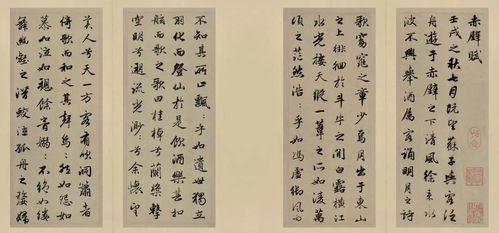 赤壁賦
壬戌之秋七月既望蘇子與客泛
舟遊于赤壁之下清風徐来水
波不興舉酒属客誦明月之詩
歌窈窕之章少焉月出于東山
之上徘徊於斗牛之間白露橫江
水光接天縱一葦之所如凌萬
頃之茫然浩〻乎如馮虛御風而
不知其所止飄〻乎如遺世獨立
羽化而登仙於是飲酒樂甚扣
舷而歌之歌曰桂棹兮蘭槳擊
空明兮遡流光渺〻兮余懷望
美人兮天一方客有吹洞簫者
倚歌而和之其聲嗚〻然如怨如
慕如泣如訴餘音嫋〻不絕如縷
舞幽壑之潛蛟泣孤舟之嫠婦